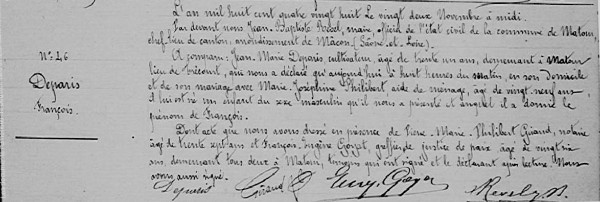 L'an mil huit cent quatre vingt huit le vingt deux Novembre à midi.
Par devant nous Jean Baptiste maire officier de l'état civil de la commune de Matour,
chef-lieu de canton, arrondissement de Mâcon, (Saône-et-Loire).
N° 46
Deparis
François
A comparu: Jean-Marie Deparis cultivateur, âgé de trente un ans, demeurant à Matour
lieu de qui nous a déclaré qu'aujourd'hui à huit heures du matin, en son Domicile
et de son mariage avec Marie Joséphine Philibert aide de ménage, âgée de vingt neuf ans
il lui est né un enfant du sexe masculin qu'il nous a présenté et auquel il a donné le
prénom de François.
Dont acte que nous avons dressé en présence de Pierre Marie Philibert Giraud, notaire
âgé de trente sept ans et François Eugène greffier de justice de paix âgé de vingt
ans, demeurant tous deux à Matour, témoins qui ont signé et le déclarant après lecture. Nous
avons aussi signé.
Deparis Giraud